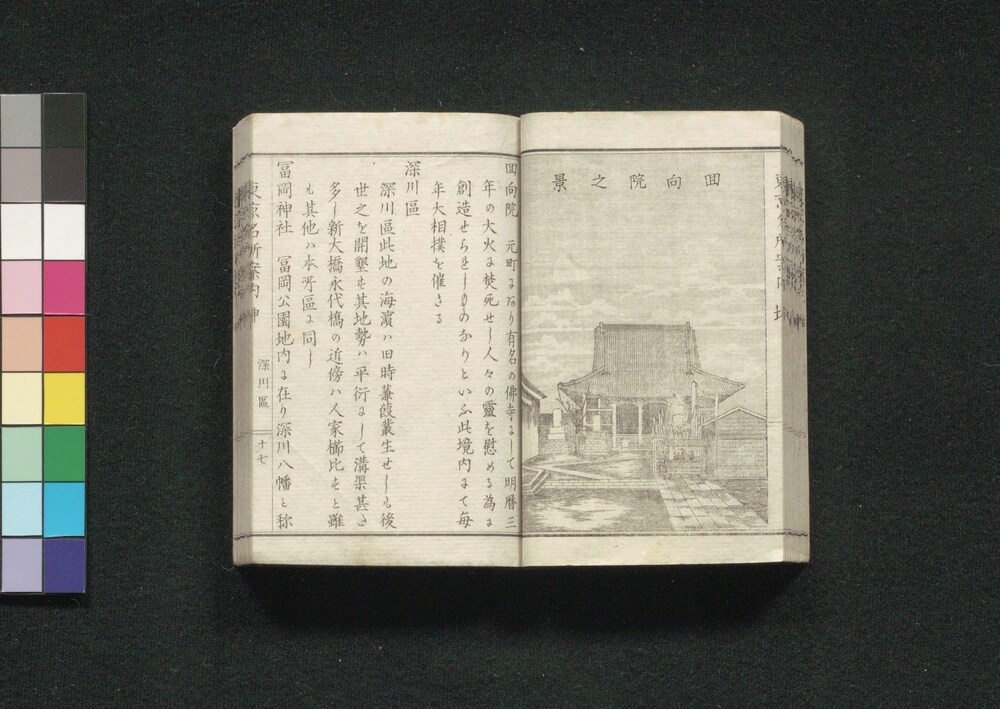 回向院之景
回向院　元町にあり有名の佛寺にして明暦三
年の大火に焚死せし人々の靈を慰める為に
創造せられしものなりといふ此境内にて毎
年大相撲を催さる
深川區
深川區此地の海濱ハ旧時蒹葭叢生せしも後
世之を開墾も其地勢ハ平衍にして溝渠甚さ
多し新大橋永代橋の近傍ハ人家櫛比すと雖
も其他ハ本所區に同し
冨岡神社　冨岡公園地内に在り深川八幡と称
深川區
十七
東京名所案内